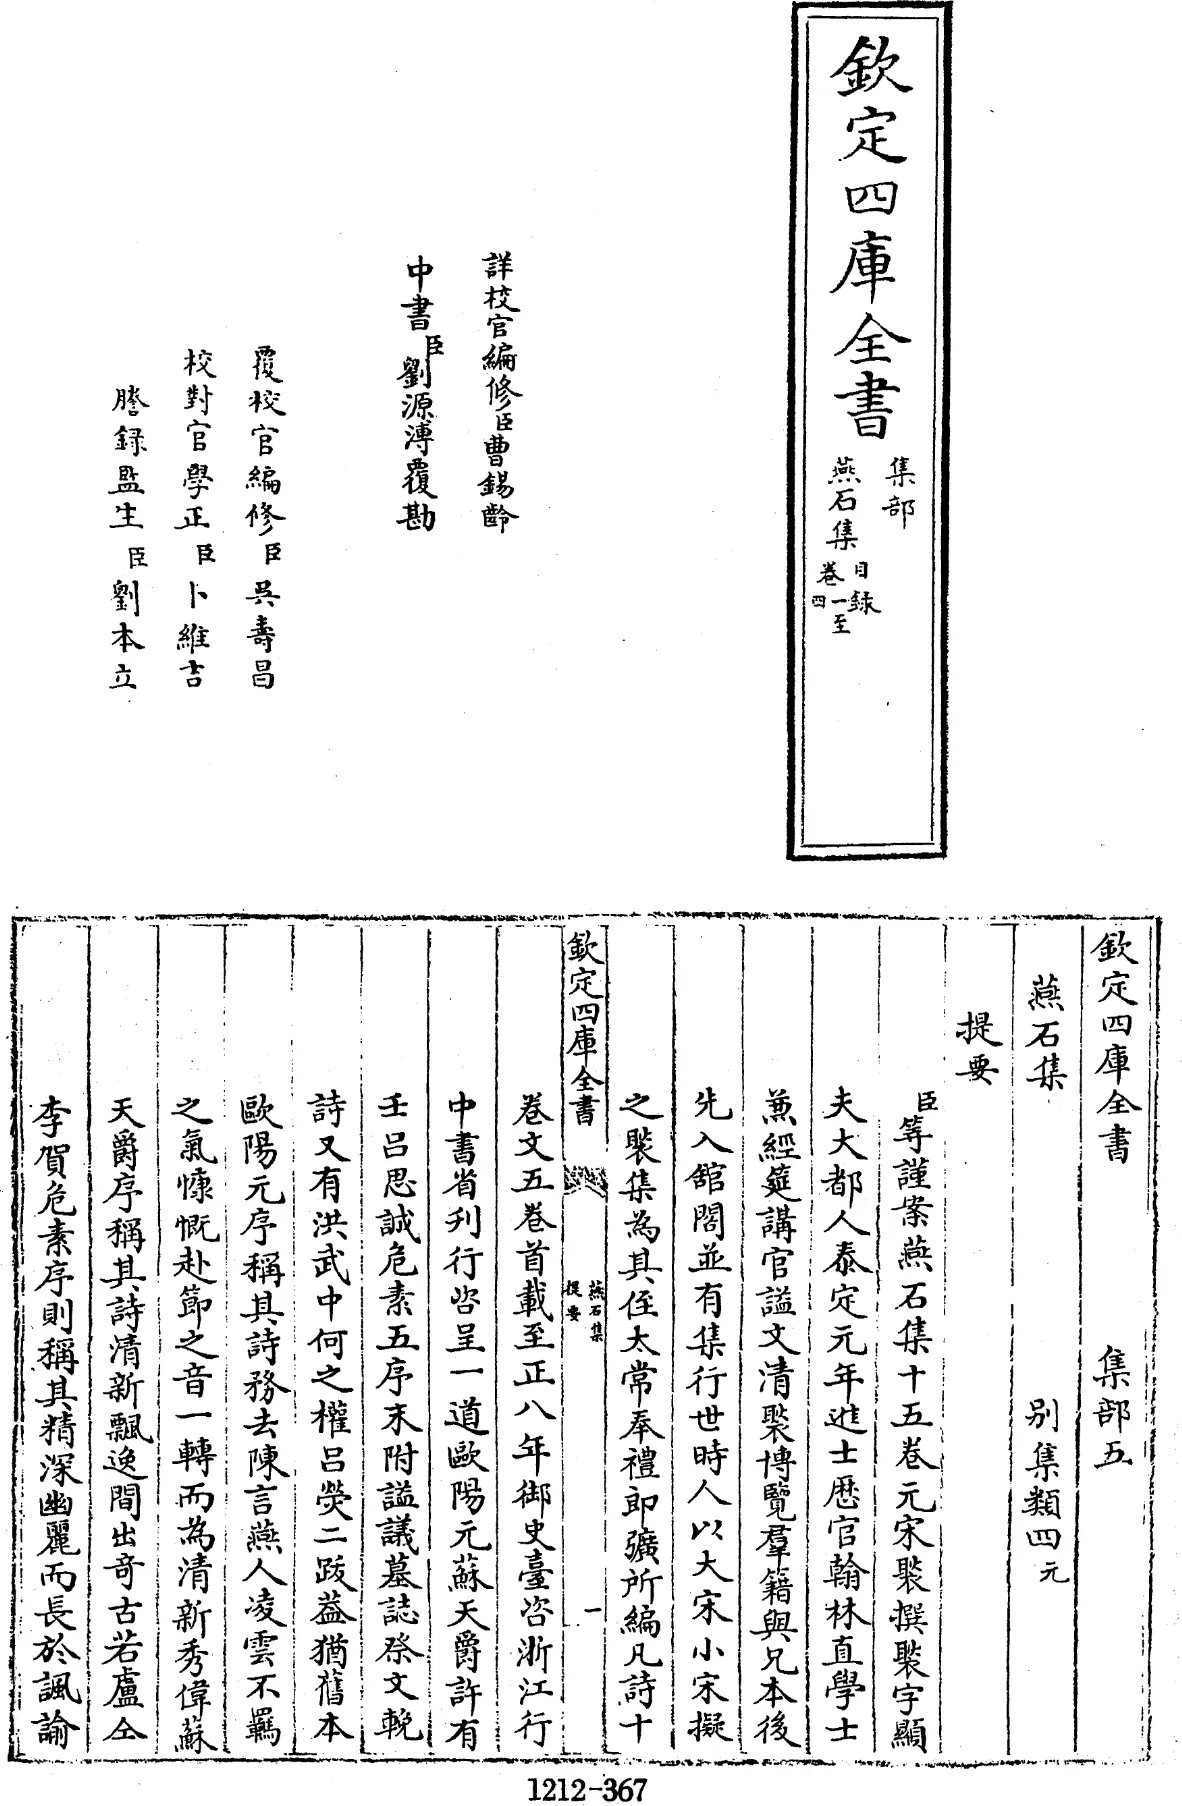 欽定四庫全書
集部
燕石集
目録
卷一至
四
詳校官編修臣曹錫齡
中書臣劉源溥覆勘
覆校官編修臣吳壽昌
校對官學正臣卜維吉
謄録監生臣劉本立
欽定四庫全書 集部五
燕石集 别集類四元
提要
臣等謹案燕石集十五卷元宋褧撰褧字顯
夫大都人泰定元年進士歴官翰林直學士
兼經筵講官謚文清褧博覽羣籍與兄本後
先入舘閣並有集行世時人以大宋小宋擬
之褧集為其侄太常奉禮郎彍所編凡詩十
欽定四庫全書
燕石集
提要
一
卷文五卷首載至正八年御史臺咨浙江行
中書省刋行咨呈一道歐陽元蘇天爵許有
壬吕思誠危素五序末附謚議墓誌祭文輓
詩又有洪武中何之權吕熒二跋葢猶舊本
歐陽元序稱其詩務去陳言燕人凌雲不羈
之氣慷慨赴節之音一轉而為清新秀偉蘇
天爵序稱其詩清新飄逸間出奇古若盧仝
李賀危素序則稱其精深幽麗而長於諷諭
1212-367